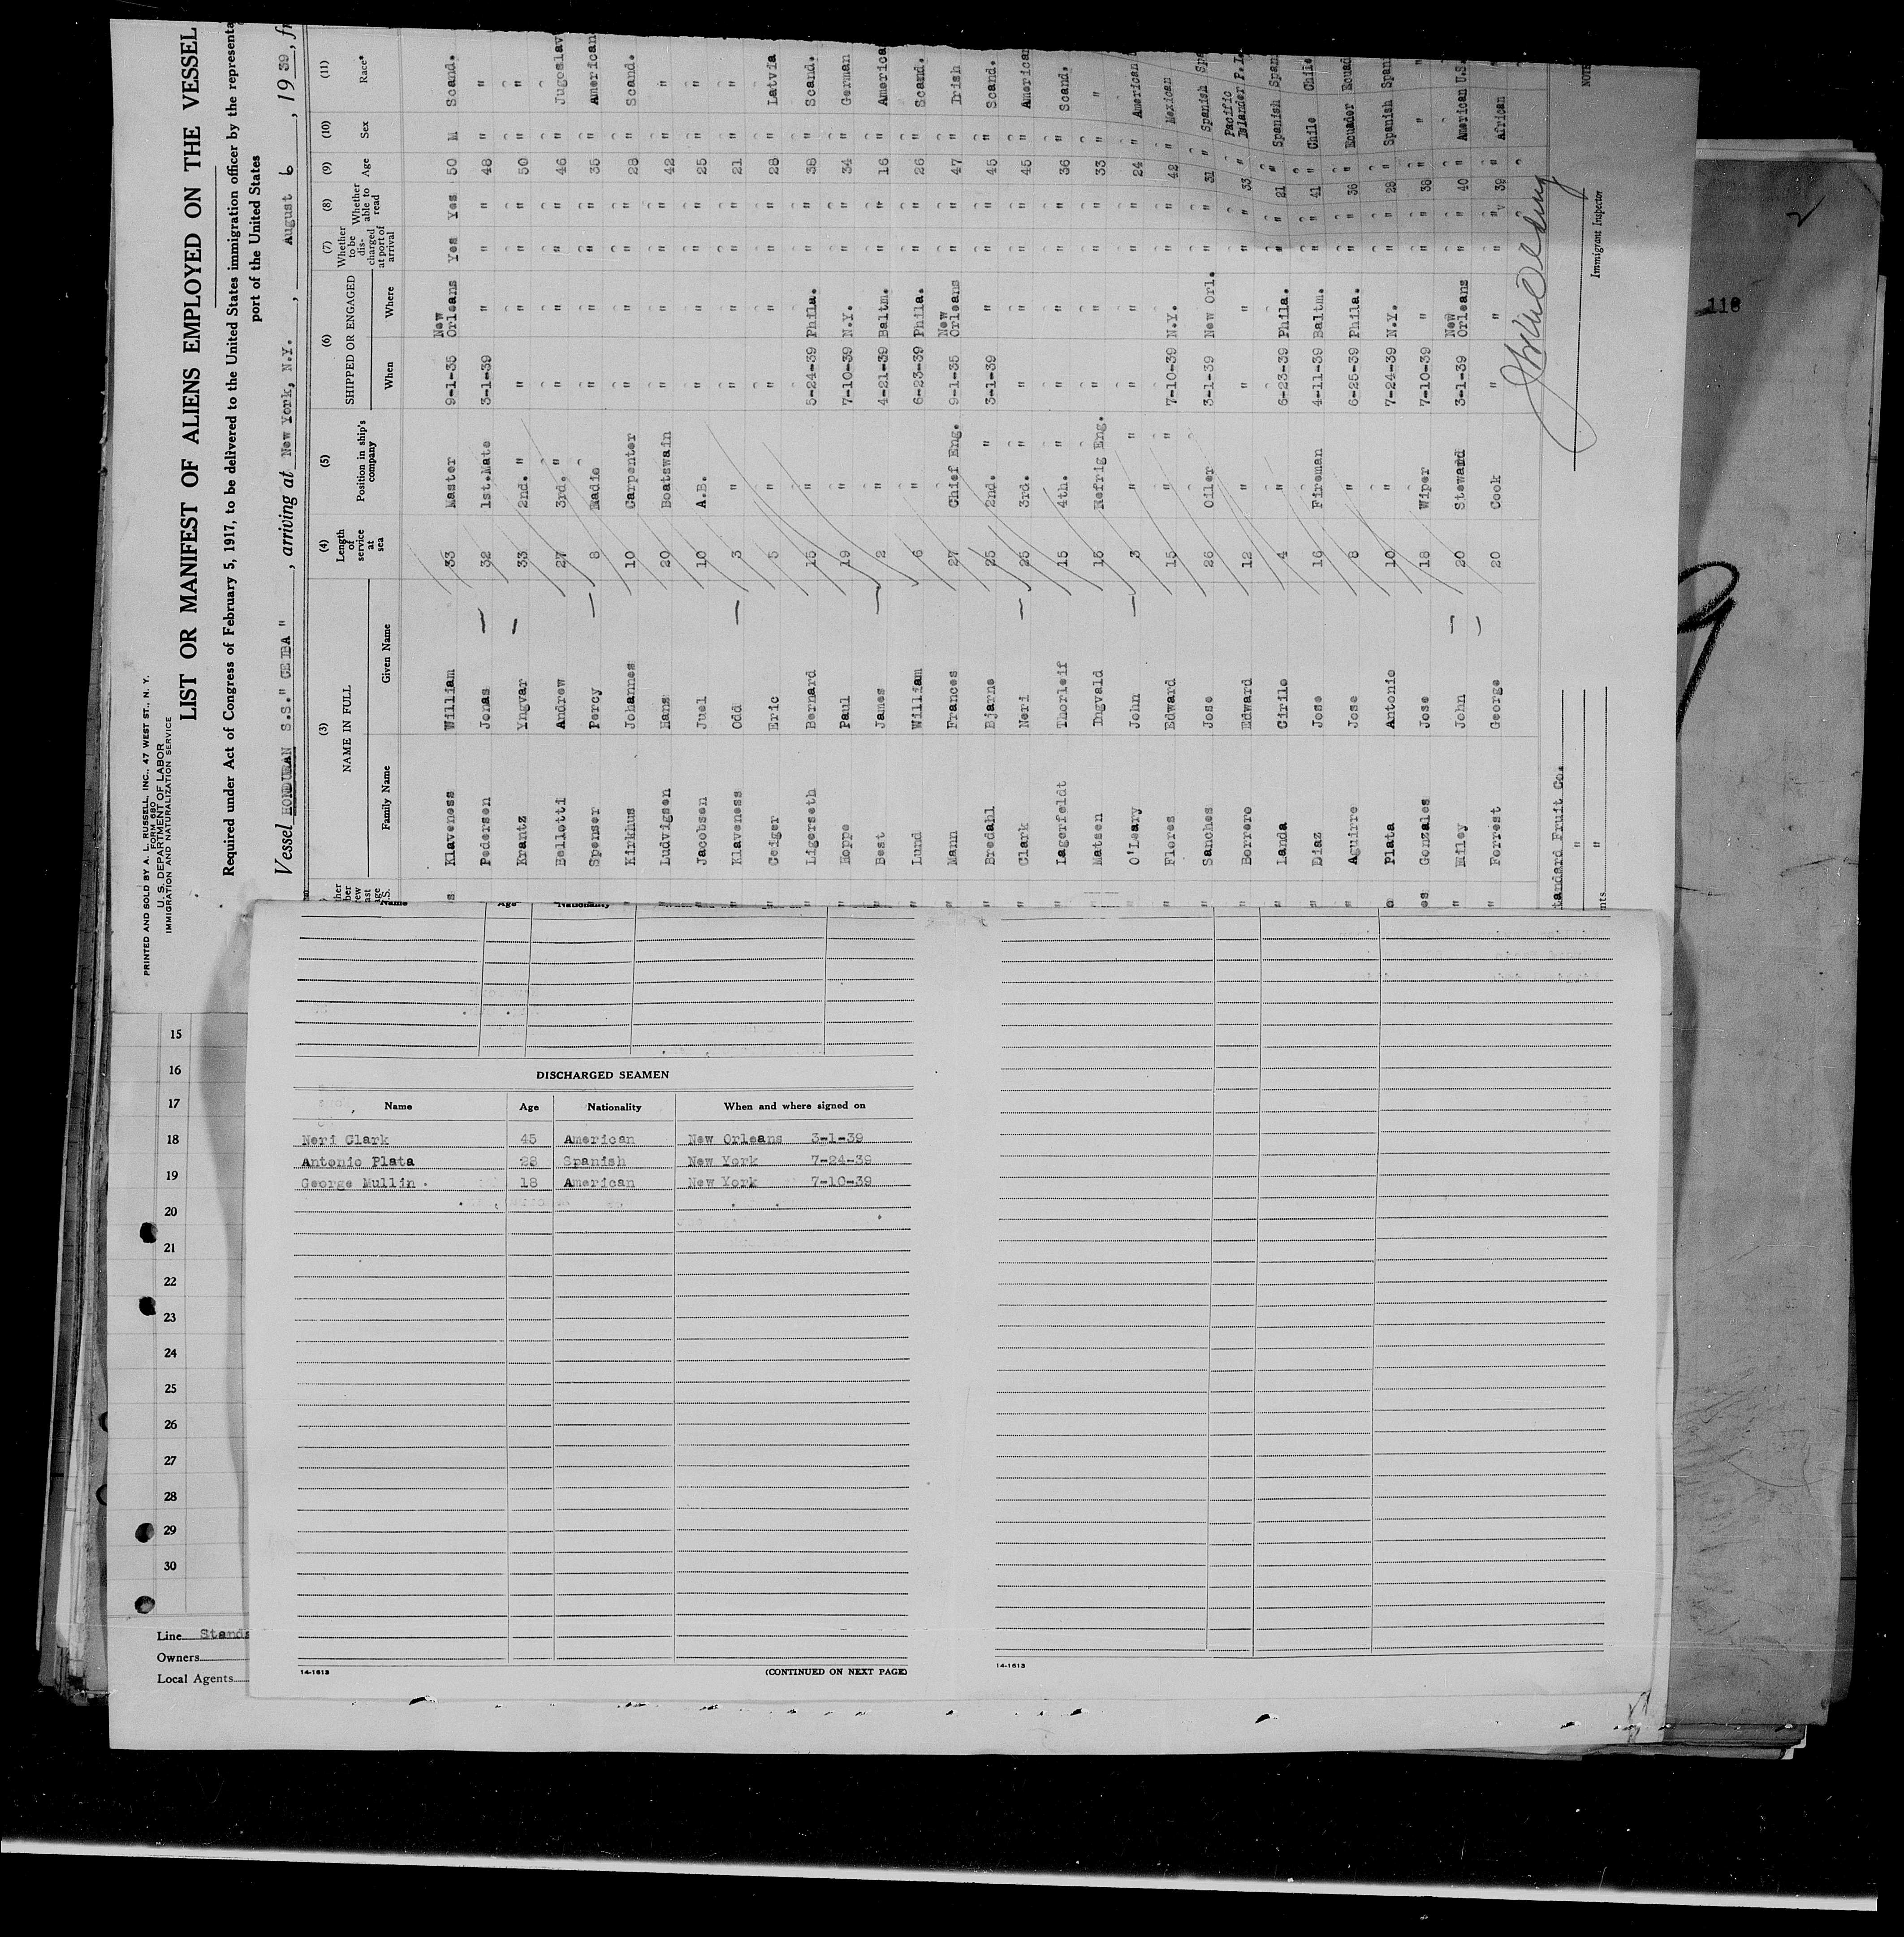 PRINTED AND SOLD BY A. L. RUSSELL, INC., 47 WEST ST., N. Y.
FORM 680
U. S. DEPARTMENT OF LABOR
IMMIGRATION AND NATURALIZATION SERVICE
LIST OR MANIFEST OF ALIENS EMPLOYED ON THE VESSEL
Required under Act of Congress of February 5, 1917, to be delivered to the United States immigration officer by the representa
port of the United States
Vessel HONDURAN S.S." CEIBA ", arriving at New York, N.Y., August 6, 1939, fr
(3) (4) (5) (6) (7) (8) (9) (10) (11)
NAME IN FULL
Family Name Given Name
Length of service at sea
Position in ship's company
SHIPPED OR ENGAGED
When Where
Whether to be discharged at port of arrival
Whether able to read
Age
Sex
Race*
Klaveness William 33 Master 9-1-35 New Orleans Yes Yes 50 M Scand.
Pedersen Jonas 32 1st.Mate 3-1-39 " " " 48 " "
Krantz Yngvar 33 2nd. " " " " " 50 " "
Bellotti Andrew 27 3rd. " " " " " 46 " Jugoslav
Spenser Percy 8 Radio " " " " 35 " American
Kirkhus Johannes 10 Carpenter " " " " 28 " Scand.
Ludvigsen Hans 20 Boatswain " " " " 42 " "
Jacobsen Juel 10 A.B. " " " " 25 " "
Klaveness Odd 3 " " " " " 21 " "
Geiger Eric 5 " " " " " 28 " Latvia
Ligerseth Bernard 15 " 5-24-39 Phila. " " 38 " Scand.
Hoppe Paul 19 " 7-10-39 N.Y. " " 34 " German
Best James 2 " 4-21-39 Baltm. " " 16 " America
Lund William 6 " 6-23-39 Phila. " " 26 " Scand.
Mann Frances 27 Chief Eng. 9-1-35 New Orleans " " 47 " Irish
Bredahl Bjarne 25 2nd. " 3-1-39 " " " 45 " Scand.
Clark Neri 25 3rd. " " " " " 45 " American
Lagerfeldt Thorleif 15 4th. " " " " " 36 " Scand.
Matsen Ingvald 15 Refrig Eng. " " " " 33 " "
O'Leary John 3 " " " " " " 24 " American
Flores Edward 15 " " 7-10-39 N.Y. " " 42 " Mexican
Sanches Jose 26 Oiler 3-1-39 New Orl. " " 31 " Spanish Spa
Borrero Edward 12 " " " " " 33 " Pacific Islander P.I.
Landa Cirilo 4 " 6-23-39 Phila. " " 21 " Spanish Span
Diaz Jose 16 Fireman 4-11-39 Baltm. " " 41 " Chile Chile
Aguirre Jose 8 " 6-25-39 Phila. " " 36 " Ecuador Ecuad
Plata Antonio 10 " 7-24-39 N.Y. " " 28 " Spanish Span
Gonzales Jose 18 Wiper 7-10-39 " " " 38 " " "
Miley John 20 Steward 3-1-39 New Orleans " " 40 " American U.S.
Forrest George 20 Cook " " " " 39 " African "
Immigrant Inspector
NOTE
tandard Fruit Co.
"
"
nts
118
2
9
Name Age Nationality
DISCHARGED SEAMEN
Name Age Nationality When and where signed on
Neri Clark 45 American New Orleans 3-1-39
Antonio Plata 28 Spanish New York 7-24-39
George Mullin 18 American New York 7-10-39
14-1613 (CONTINUED ON NEXT PAGE)
14-1613
15
16
17
18
19
20
21
22
23
24
25
26
27
28
29
30
Line Standa
Owners
Local Agents